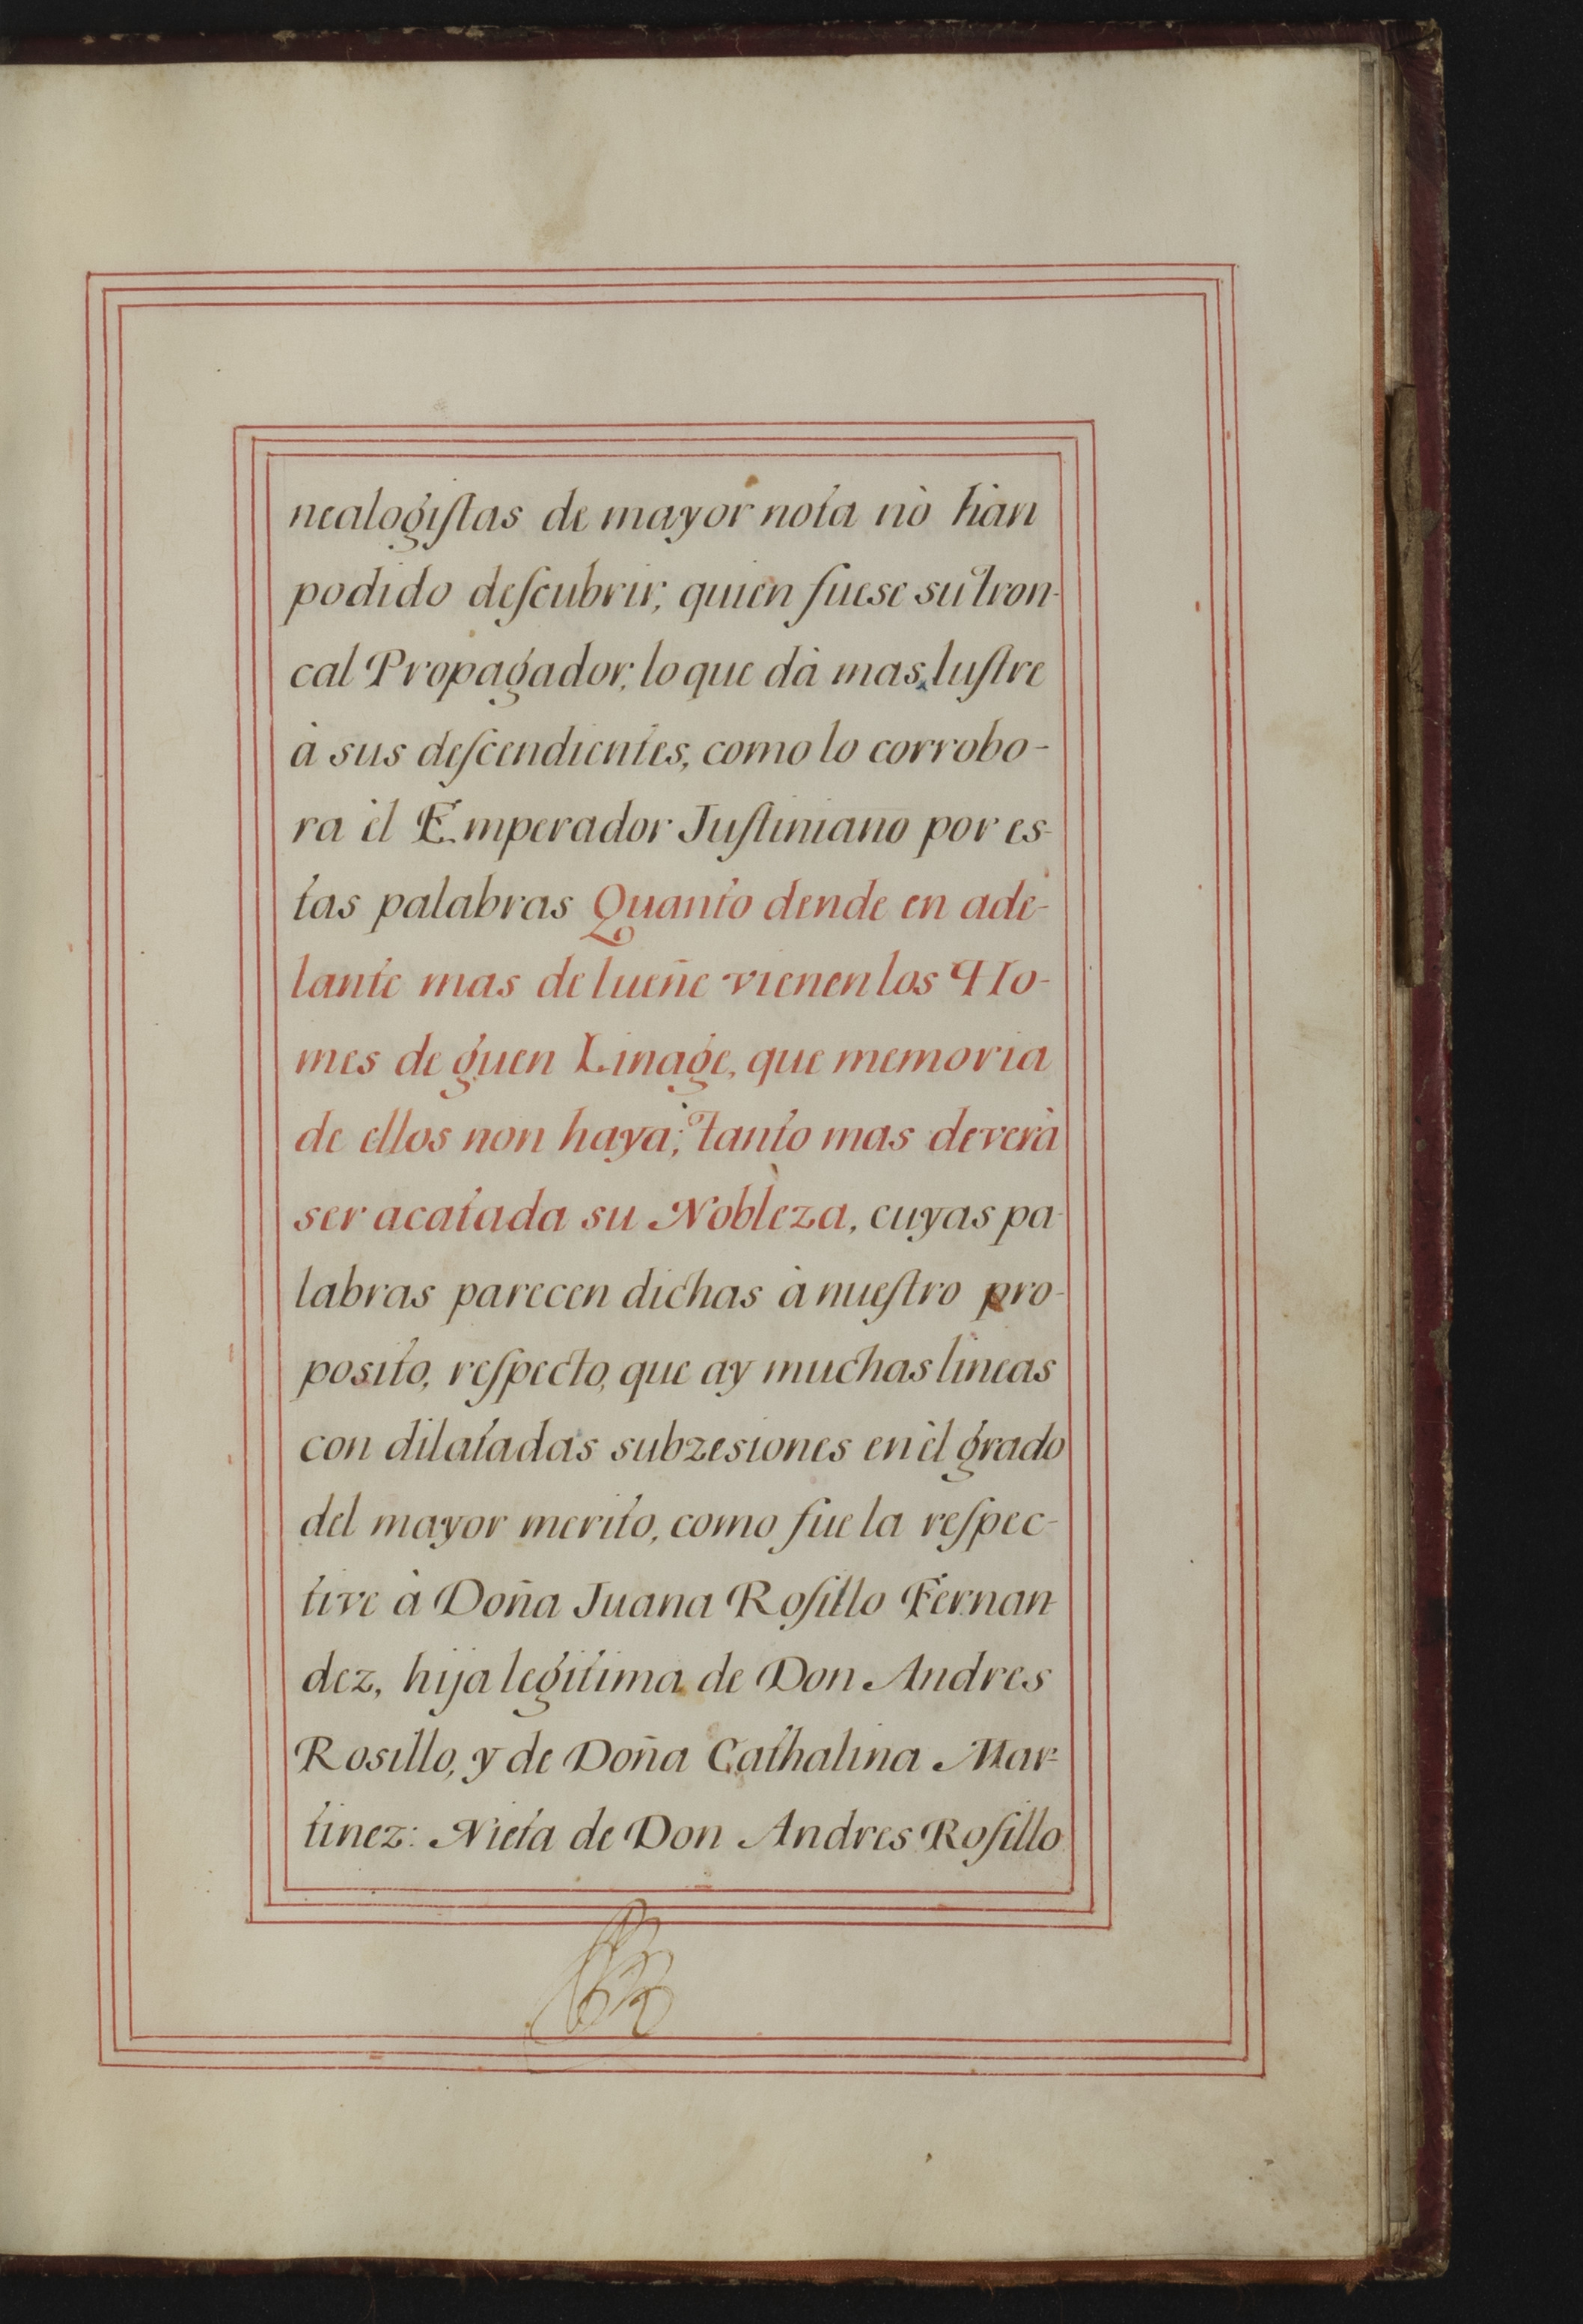 nealogiſtas de mayor nota nò hàn
podido deſcubrir, quien fuese su tron-
cal Propagador, lo que dà mas luſtre
à sus deſcendientes, como lo corrobo-
ra èl Emperador Juſtiniano por es-
tas palabras Quanto dende en ade-
lante mas de lueñe vienen los Ho-
mes de guen Linage, que memoria
de ellos non haya; tanto mas deverà
ser acatada su Nobleza, cuyas pa-
labras parecen dichas à nueſtro pro-
posito, reſpecto, que ay muchas lineas
con dilatadas subzesiones en èl grado
del mayor merito, como fue la reſpec-
tive à Doña Juana Roſillo Fernan-
dez, hija legitima de Don Andres
Rosillo, y de Doña Cathalina Mar-
tinez: Nieta de Don Andres Roſillo